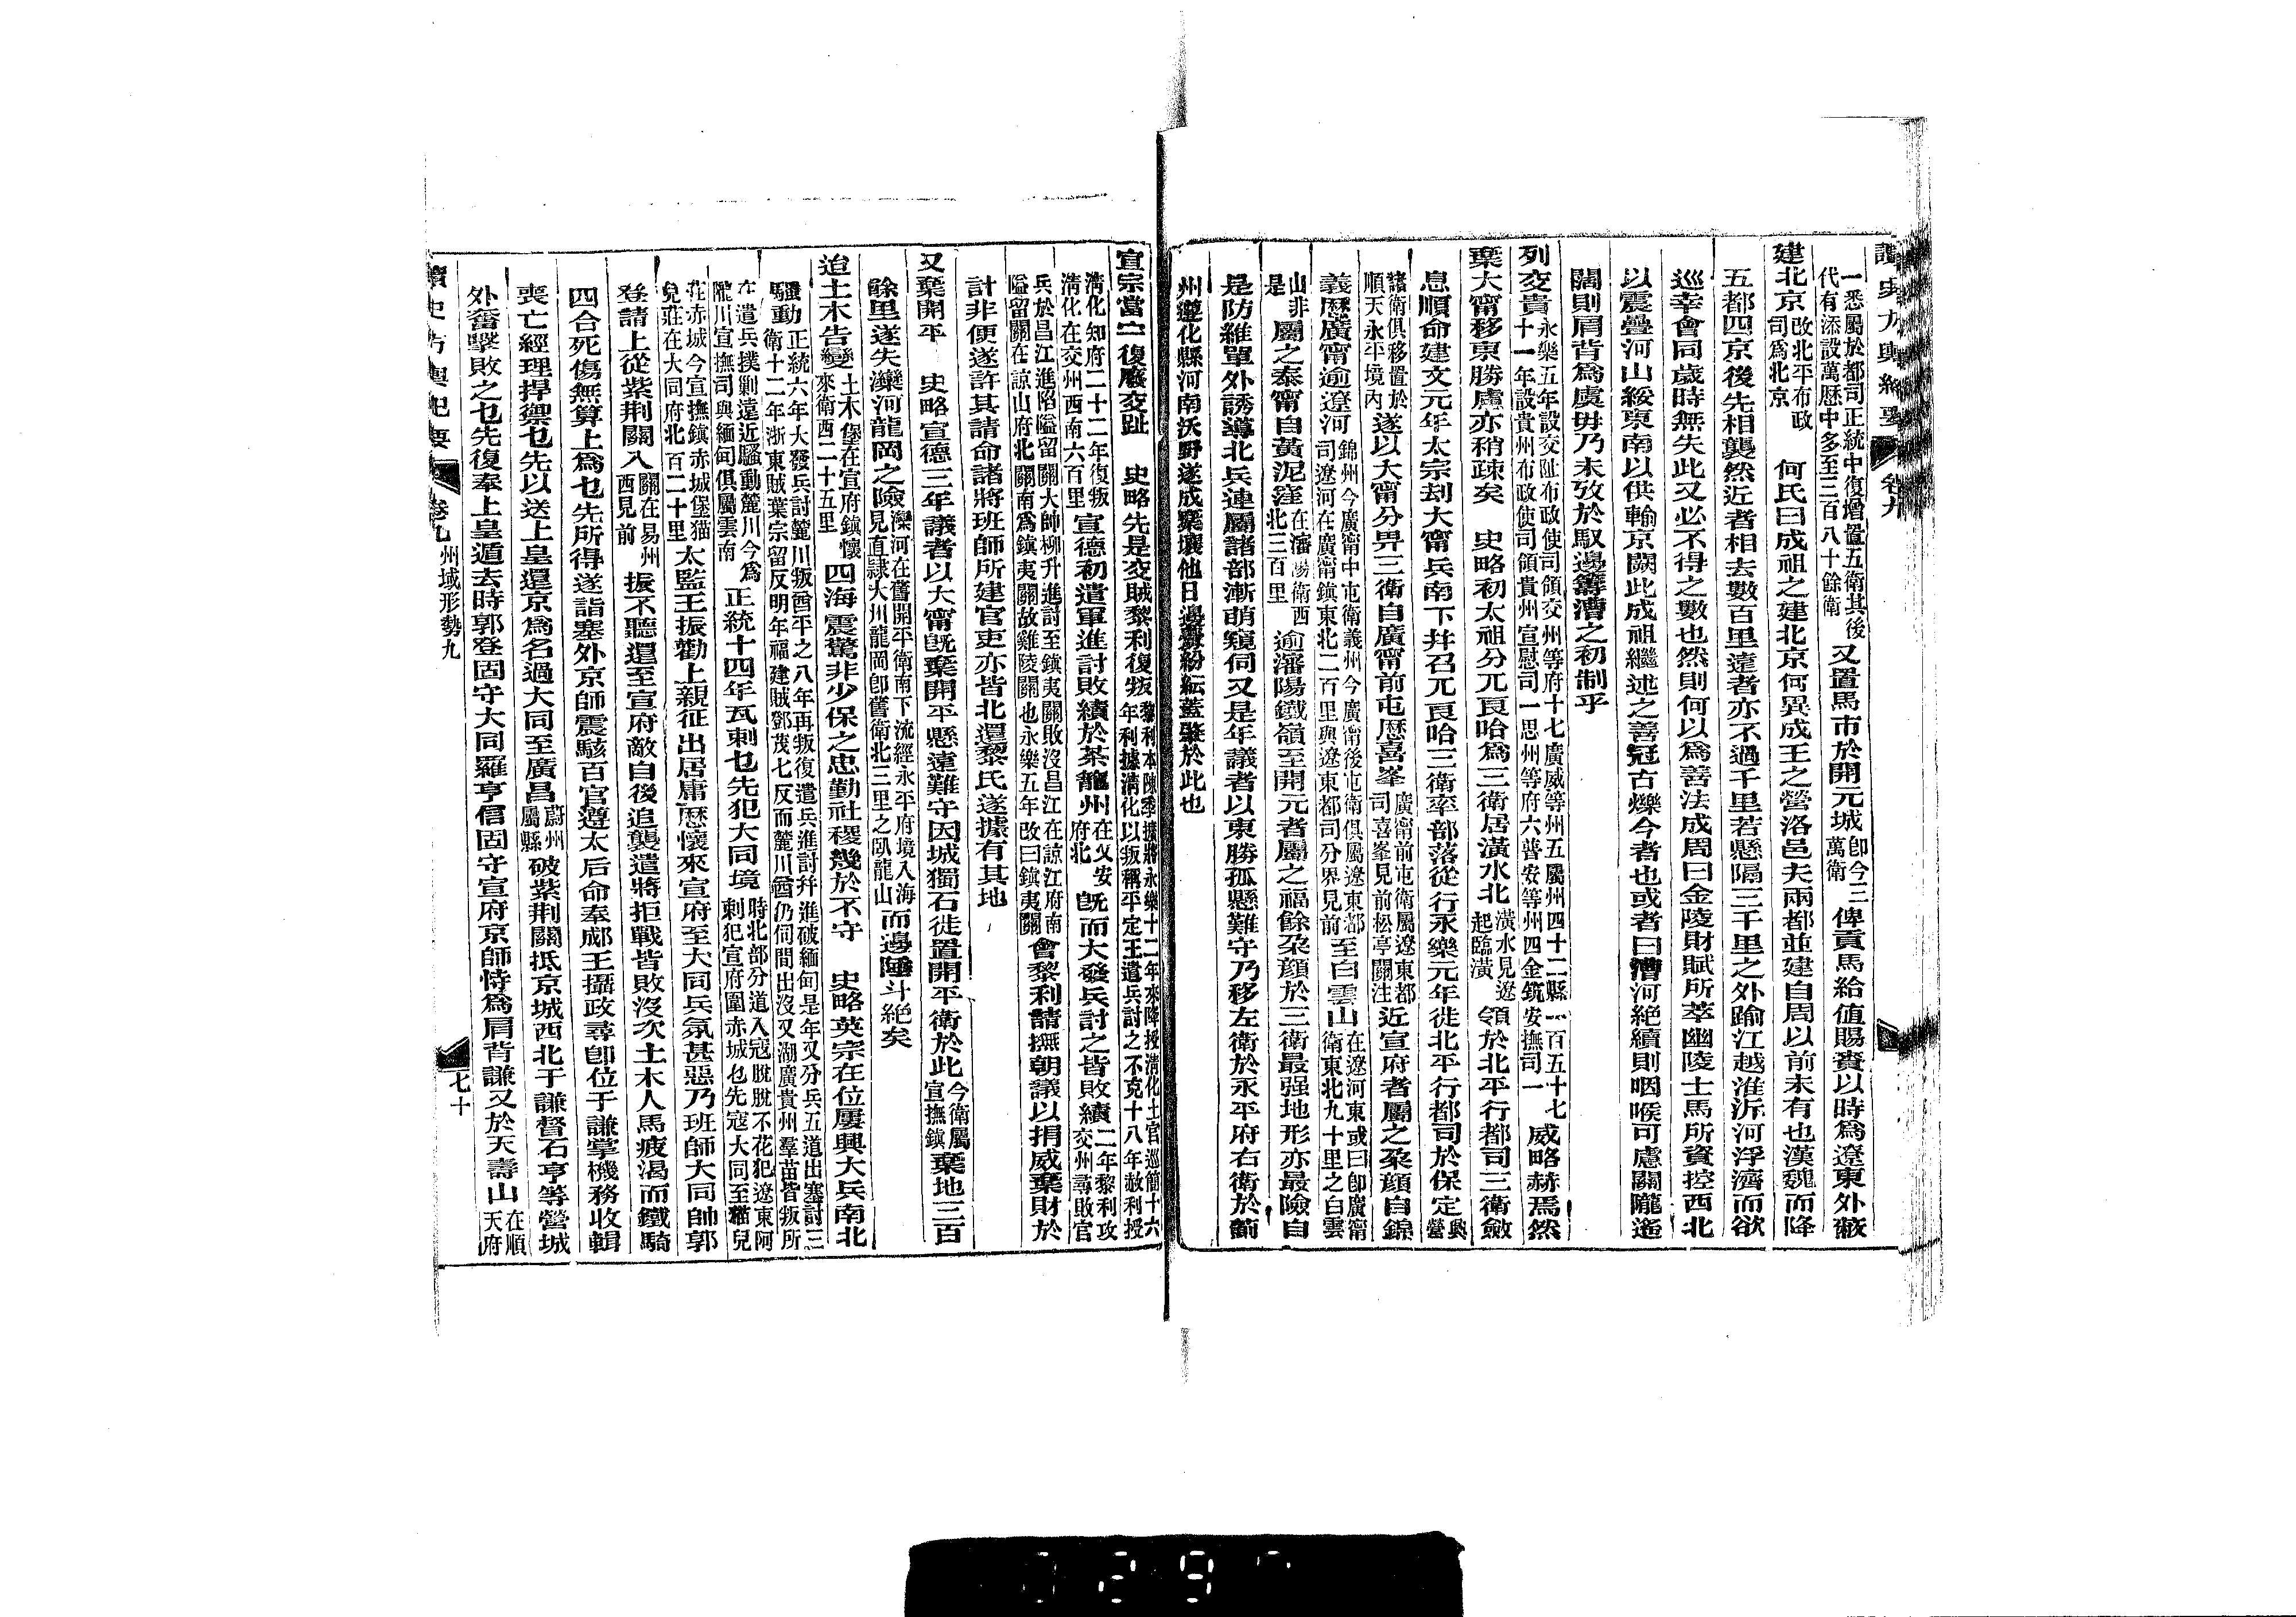 讀史方輿紀要 卷九
一悉屬於都司正統中復增置五衛其後代有添設萬歷中多至三百八十餘衛 又置馬市於開元城卽今三萬衛 俾貢馬給値賜賚以時爲遼東外蔽
建北京改北平布政司爲北京 何氏曰成祖之建北京何異成王之營洛邑夫兩都並建自周以前未有也漢魏而降
五都四京後先相襲然近者相去數百里遠者亦不過千里若懸隔三千里之外踰江越淮泝河浮濟而欲
巡幸會同歲時無失此又必不得之數也然則何以爲善法成周曰金陵財賦所萃幽陵士馬所資控西北
以震疊河山綏東南以供輸京闕此成祖繼述之善冠古爍今者也或者曰漕河絶續則咽喉可慮關隴遙
闊則肩背爲虞毋乃未攷於馭邊籌漕之初制乎
列交貴永樂五年設交阯布政使司領交州等府十七廣威等州五屬州四十二縣一百五十七十一年設貴州布政使司領貴州宣慰司一思州等府六普安等州四金筑安撫司一 威略赫焉然
棄大甯移東勝慮亦稍疎矣 史略初太祖分兀良哈爲三衛居潢水北潢水見遼起臨潢 領於北平行都司三衛斂
息順命建文元年太宗刦大甯兵南下幷召兀良哈三衛率部落從行永樂元年徙北平行都司於保定興營
諸衛俱移置於順天永平境內 遂以大甯分畀三衛自廣甯前屯歷喜峯廣甯前屯衛屬遼東都司喜峯見前松亭關注 近宣府者屬之朵顔自錦
義歷廣甯逾遼河錦州今廣甯中屯衛義州今廣甯後屯衛俱屬遼東都司遼河在廣甯鎭東北二百里與遼東都司分界見前 至白雲山在遼河東或曰卽廣甯衛東北九十里之白雲
山非是 屬之泰甯自黃泥窪在瀋陽衛西北三百里 逾瀋陽鐵嶺至開元者屬之福餘朵顔於三衛最强地形亦最險自
是防維單外誘導北兵連屬諸部漸萌窺伺又是年議者以東勝孤懸難守乃移左衛於永平府右衛於薊
州遵化縣河南沃野遂成棄壤他日邊釁紛紜蓋肇於此也
宣宗當宁復廢交趾 史略先是交賊黎利復叛黎利本陳季擴將永樂十二年來降授淸化土官巡簡十六年利據淸化以叛稱平定王遣兵討之不克十八年赦利授
淸化知府二十二年復叛淸化在交州西南六百里 宣德初遣軍進討敗績於茶籠州在乂安府北 旣而大發兵討之皆敗績二年黎利攻交州尋敗官
兵於昌江進陷隘留關大帥柳升進討至鎭夷關敗沒昌江在諒江府南隘留關在諒山府北關南爲鎭夷關故雞陵關也永樂五年改曰鎭夷關 會黎利請撫朝議以捐威棄財於
計非便遂許其請命諸將班師所建官吏亦皆北還黎氏遂據有其地
又棄開平 史略宣德三年議者以大甯旣棄開平懸遠難守因城獨石徙置開平衛於此今衛屬宣撫鎭 棄地三百
餘里遂失灤河龍岡之險灤河在舊開平衛南下流經永平府境入海見直隷大川龍岡卽舊衛北三里之臥龍山 而邊陲斗絶矣
迨土木告變土木堡在宣府鎭懷來衛西二十五里 四海震驚非少保之忠勤社稷幾於不守 史略英宗在位屢興大兵南北
騷動正統六年大發兵討麓川叛酋平之八年再叛復遣兵進討幷進破緬甸是年又分兵五道出塞討三衛十二年浙東賊葉宗留反明年福建賊鄧茂七反而麓川酋仍伺間出沒又湖廣貴州羣苗皆叛所
在遣兵撲剿遠近騷動麓川今爲隴川宣撫司與緬甸俱屬雲南 正統十四年瓦剌乜先犯大同境時北部分道入寇脫脫不花犯遼東阿剌犯宣府圍赤城乜先寇大同至猫兒
莊赤城今宣撫鎭赤城堡猫兒莊在大同府北百二十里 太監王振勸上親征出居庸歷懷來宣府至大同兵氛甚惡乃班師大同帥郭
登請上從紫荆關入關在易州西見前 振不聽還至宣府敵自後追襲遣將拒戰皆敗沒次土木人馬疲渴而鐵騎
四合死傷無算上爲乜先所得遂詣塞外京師震駭百官遵太后命奉郕王攝政尋卽位于謙掌機務收輯
喪亡經理捍禦乜先以送上皇還京爲名過大同至廣昌蔚州屬縣 破紫荆關抵京城西北于謙督石亨等營城
外奮擊敗之乜先復奉上皇遁去時郭登固守大同羅亨信固守宣府京師恃爲肩背謙又於天壽山在順天府
讀史方輿紀要 卷九 州域形勢九 七十